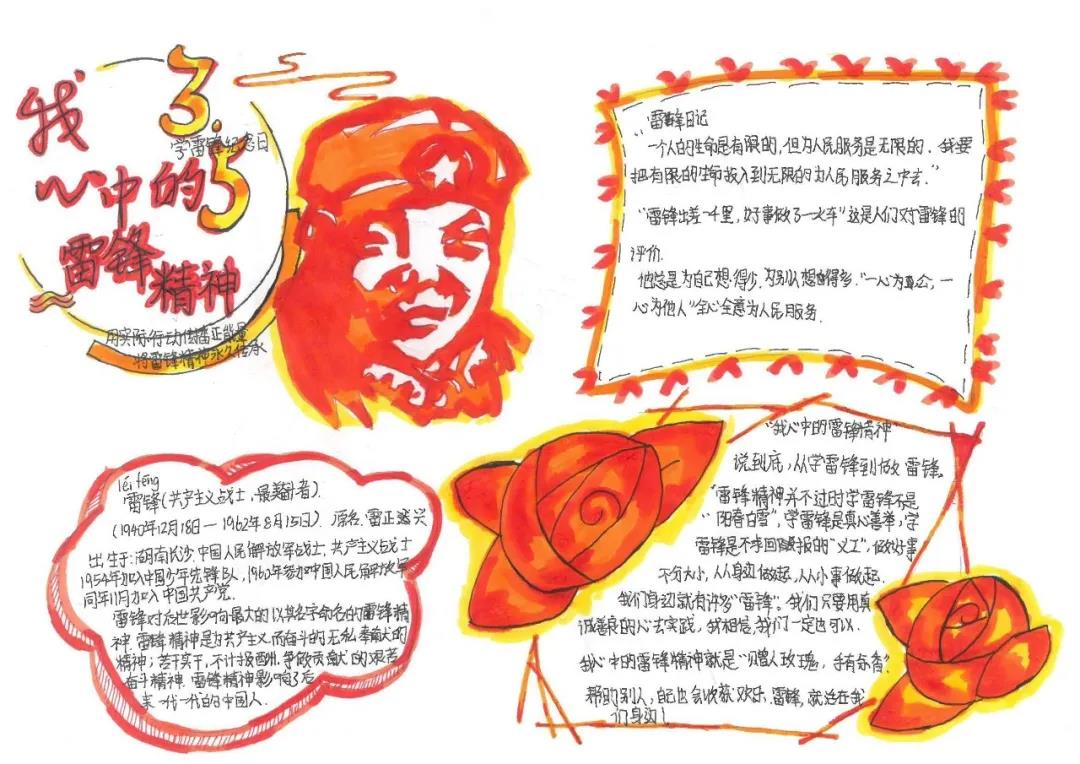 我
心中的
雷锋
精神
3.5
学雷锋纪念日
用实际行动传播正能量
将雷锋精神永久传承
雷锋日记
“一个人的生命是有限的，但为人民服务是无限的．我要
把有限的生命投入到无限的为人民服务之中去．”
“雷锋出差一千里，好事做了一火车”这是人们对雷锋的
评价．
他总是为自己想得少，为别人想得多．“一心为公，一
心为他人”全心全意为人民服务．
léi fēng
雷锋（共产主义战士、最美奋斗者）．
（1940年12月18日—1962年8月15日）．原名雷正兴
出生于湖南长沙．中国人民解放军战士，共产主义战士
1954年加入中国少年先锋队，1960年参加中国人民解放军
同年11月加入中国共产党．
雷锋对后世影响最大的以其名字命名的雷锋精
神．雷锋精神是为共产主义而奋斗的无私奉献的
精神；苦干实干，不计报酬，争做贡献的艰苦
奋斗精神．雷锋精神影响了后
来一代一代的中国人．
“我心中的雷锋精神”
说到底，从学雷锋到做雷锋．
“雷锋精神并不过时学雷锋不是
“阳春白雪”，学雷锋是真心善举，学
雷锋是不求回报的“义工”，做好事
不分大小，从身边做起，从小事做起．
我们身边就有许多“雷锋”．我们只要用真
诚善良的心去实践，我相信，我们一定也可以．
我心中的雷锋精神就是“赠人玫瑰，手有余香”
帮助别人，自己也会收获欢乐．雷锋，就活在我
们身边！